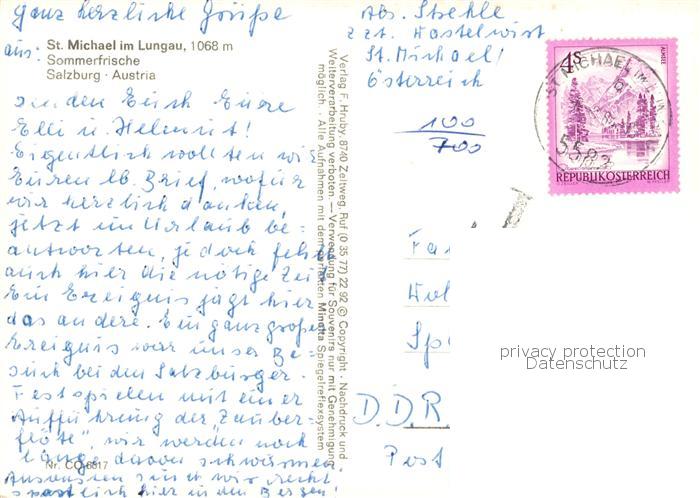 ganz herzliche Grüße
aus:
St. Michael im Lungau, 1068 m
Sommerfrische
Salzburg · Austria
senden Euch Eure
Elli u. Helmut!
Eigentlich wollten wir
Euren lb. Brief, wofür
wir herzlich danken,
jetzt im Urlaub be-
antworten, jedoch fehlt
auch hier die nötige Zeit
Ein Ereignis jagt hier
das andere. Ein ganz großes
Ereignis war unser Be-
such bei den Salzburger
Festspielen mit einer
Aufführung der „Zauber-
flöte", wir werden noch
lange davon schwärmen.
Ansonsten sind wir recht
sportlich hier in den Bergen!
Nr. CO 6817
Verlag F. Hruby, 8740 Zeltweg, Ruf (0 35 77) 22 92 © Copyright · Nachdruck und
Weiterverarbeitung verboten. — Verwendung für Souvenirs nur mit Genehmigung
möglich. · Alle Aufnahmen mit dem perfekten Minolta Spiegelreflexsystem
Abs. Stehle
zzt. Hostelwirt
St. Michael/
Österreich
100
700
4S
ALMSEE
ST. MICHAEL IM LUNGAU
5582
REPUBLIK ÖSTERREICH
D.D.R
Post
privacy protection
Datenschutz